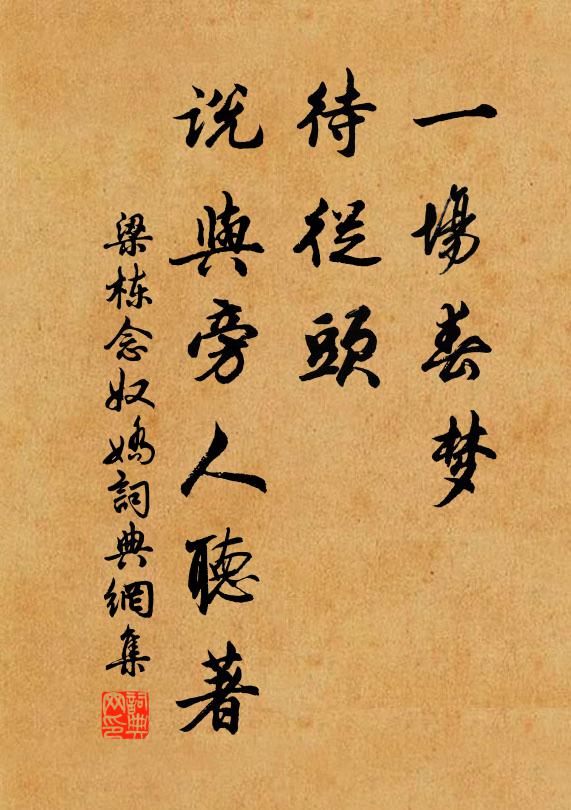 一場春梦
待從頭
说與旁人聽著
梁栋念奴嬌詞典網集
詞典
网印